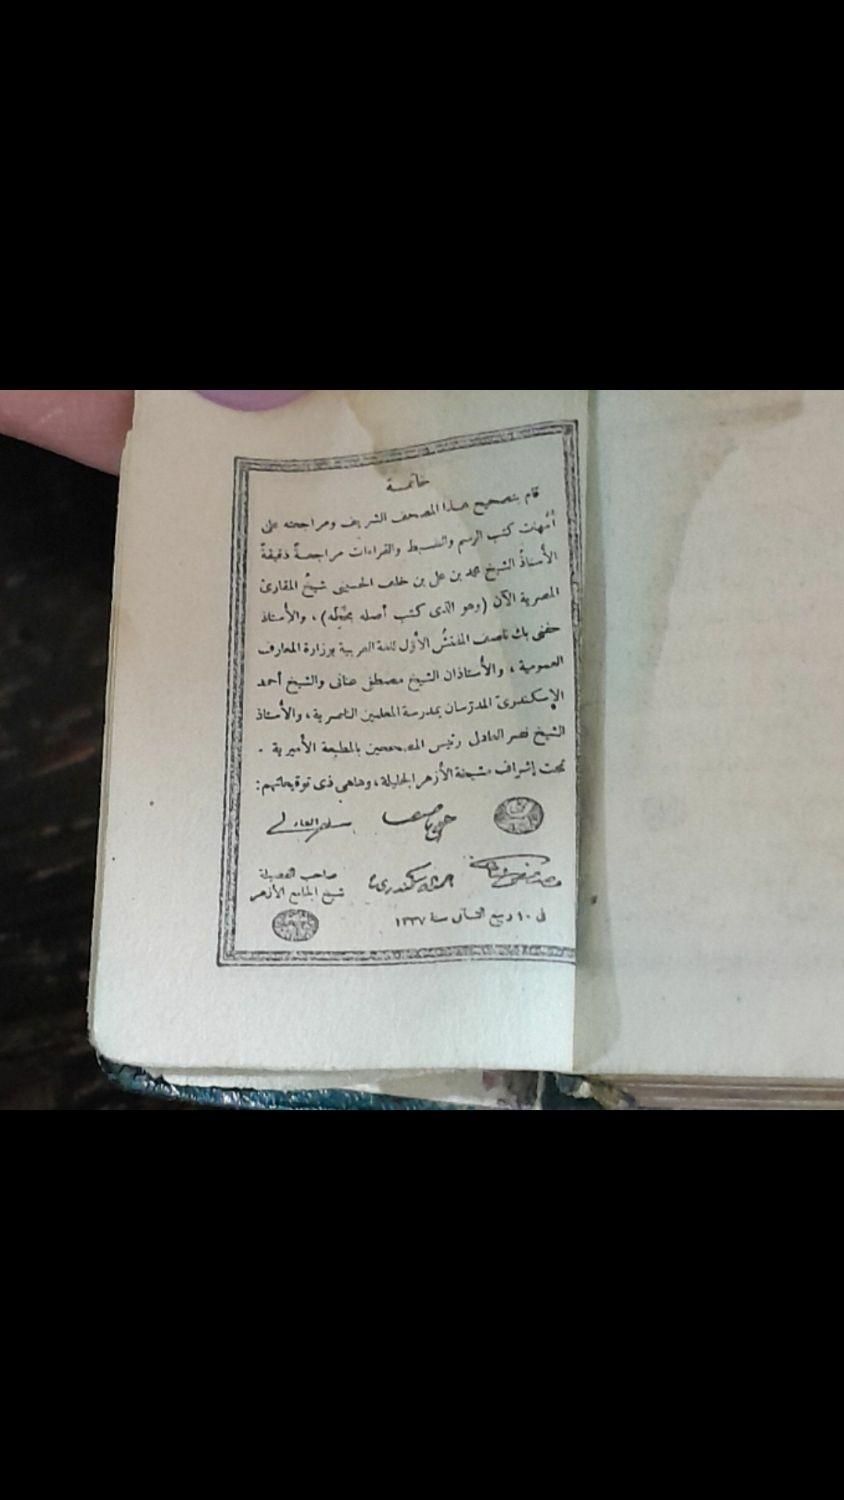 خاتمــة
قام بتصحيح هــذا المصحف الشريف ومراجعته على
أمهات كتب الرسم والضــبط والقراءات مراجعــةً دقيقةً
الأستاذُ الشيخ محمد بن على بن خلف الحسينى شيخُ المقارئ
المصرية الآن (وهو الذى كتب أصله بخطِّه) ، والأستاذ
حفنى بك ناصف المفتشُ الأوّل للغة العربية بوزارة المعارف
العمومية ، والأستاذان الشيخ مصطفى عنانى والشيخ أحمد
الإسكندرىّ المدرّسان بمدرسة المعلمين الناصرية ، والأستاذ
الشيخ نصر العادل رئيس المصححين بالمطبعة الأميرية .
تحت إشراف مشيخة الأزهر الجليلة ، وهاهى ذى توقيعاتهم :
صاحب الفضيلة
شيخ الجامع الأزهر
فى ١٠ ربيع الثــانى سنة ١٣٣٧